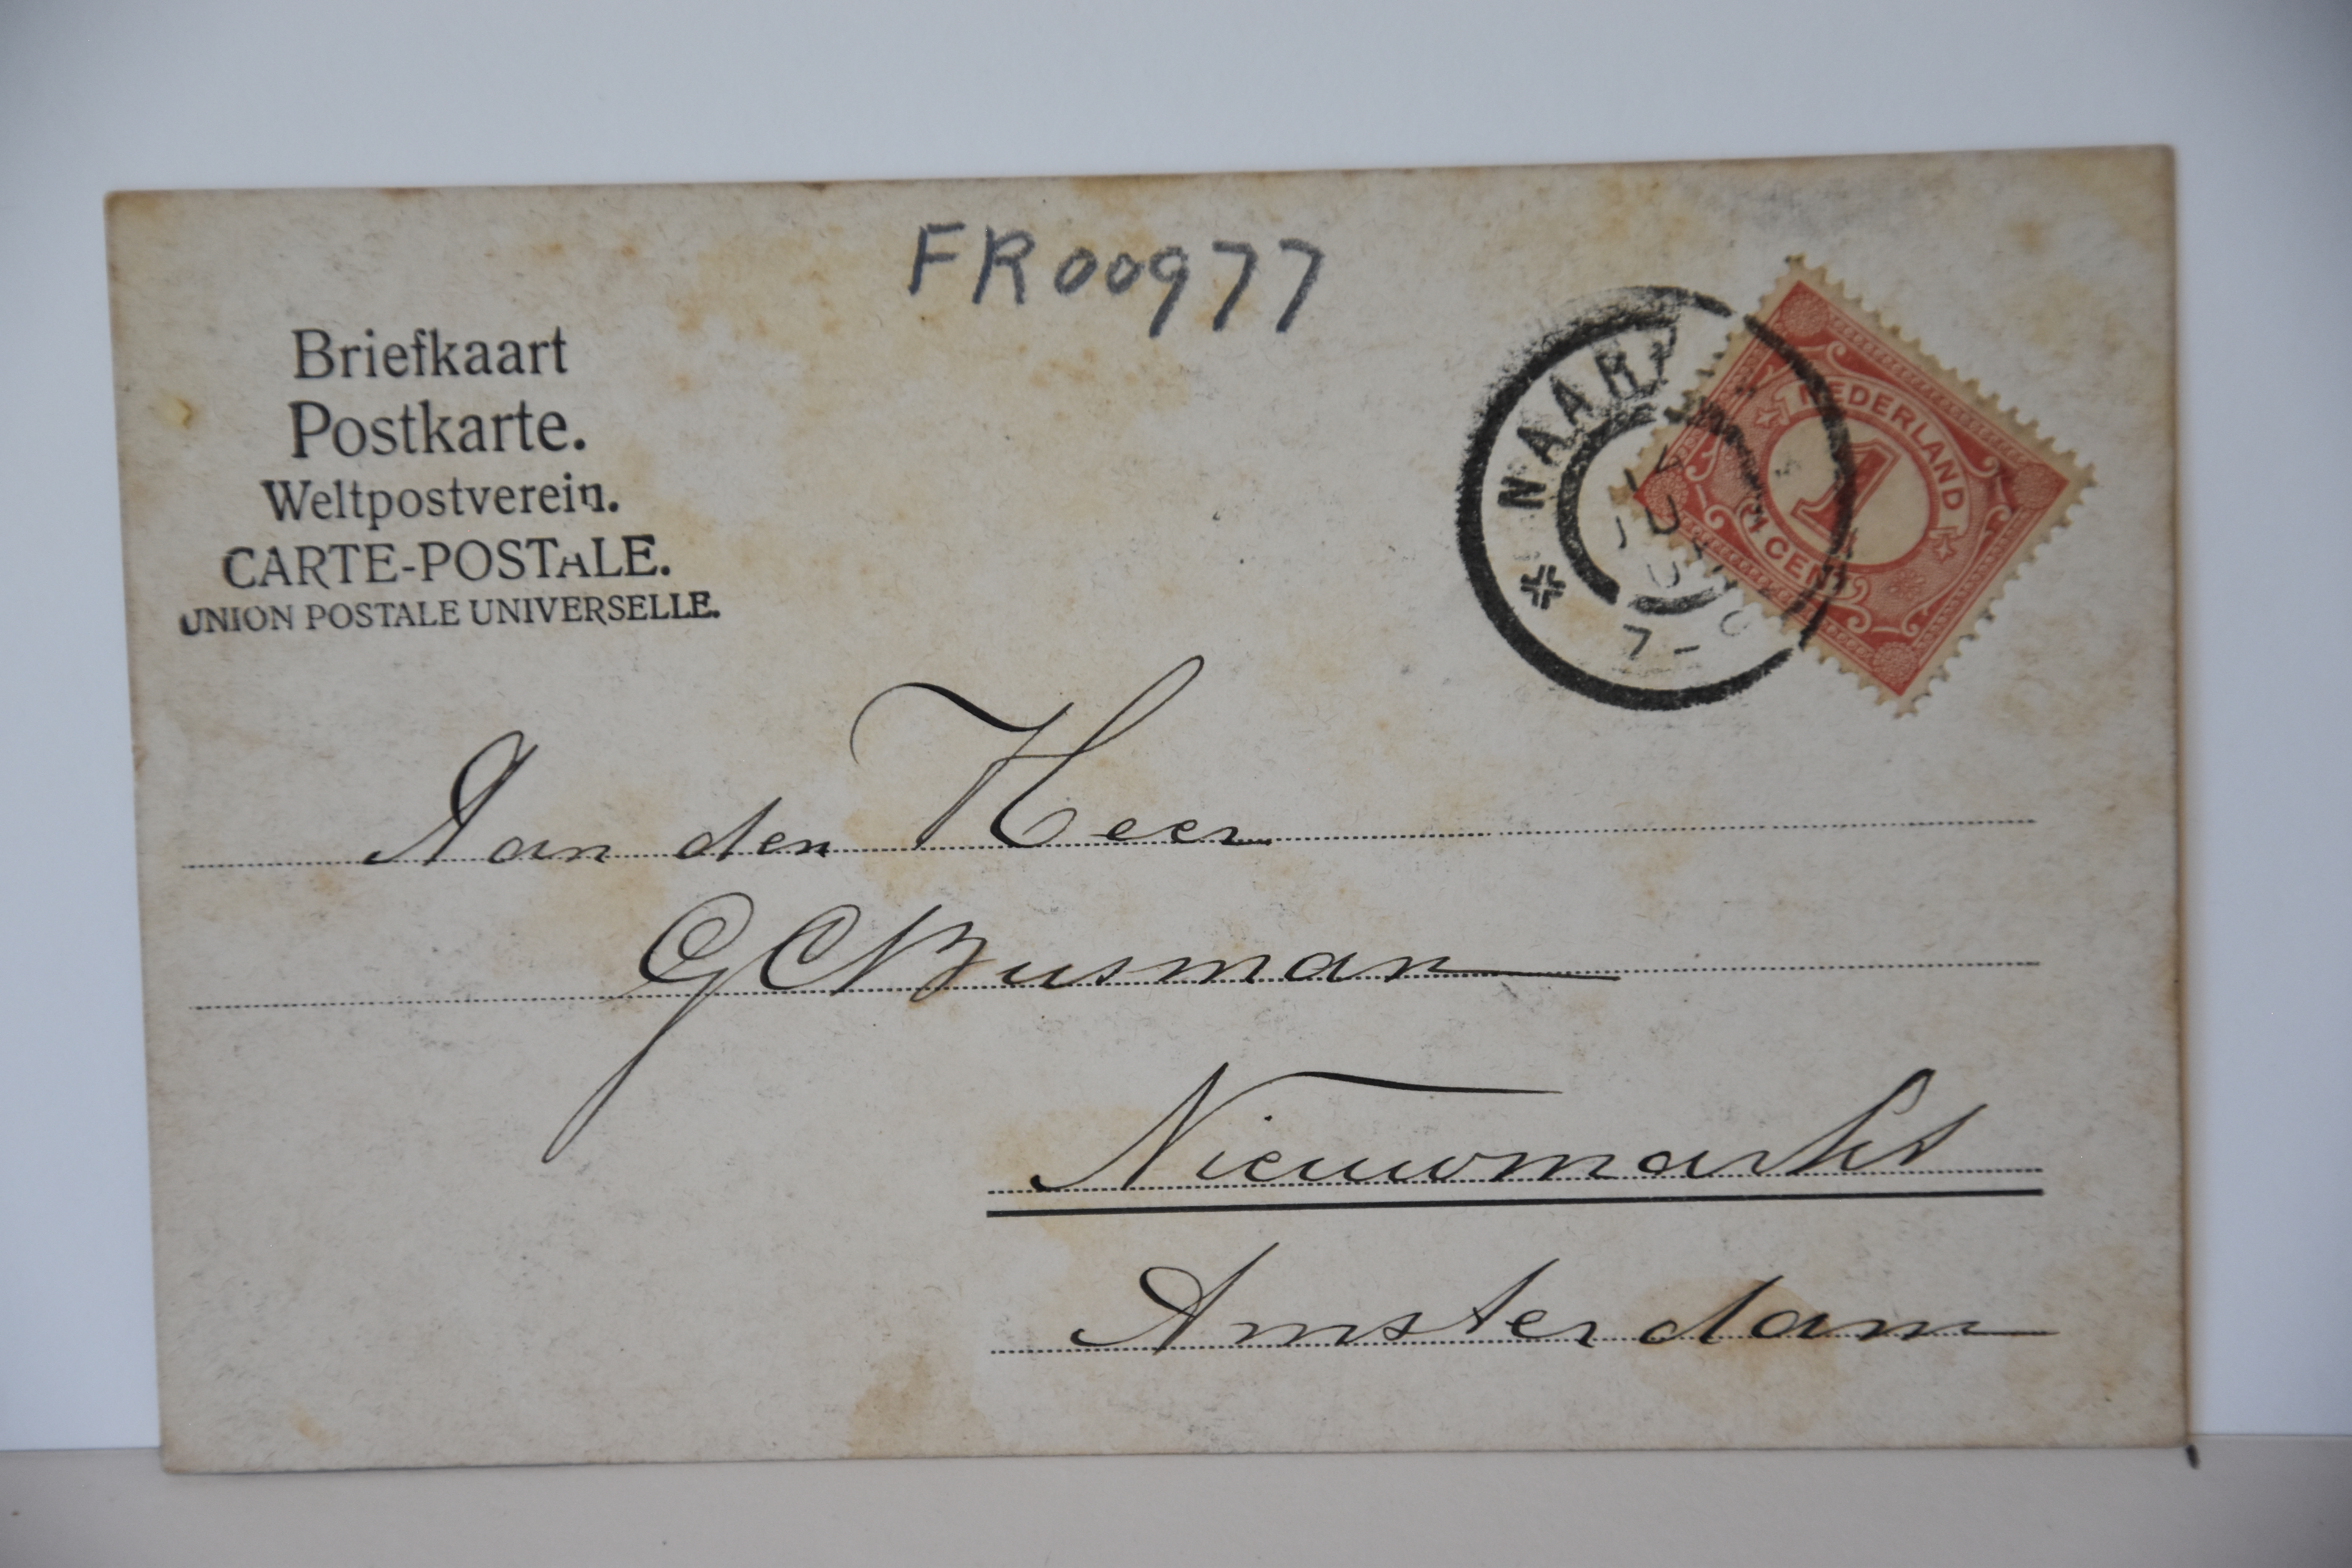 FR00977
Briefkaart
Postkarte.
Weltpostverein.
CARTE-POSTALE.
UNION POSTALE UNIVERSELLE.
NEDERLAND
1
1 CENT
7-
Aan den Heer
G C Busman
Nieuwmarkt
Amsterdam